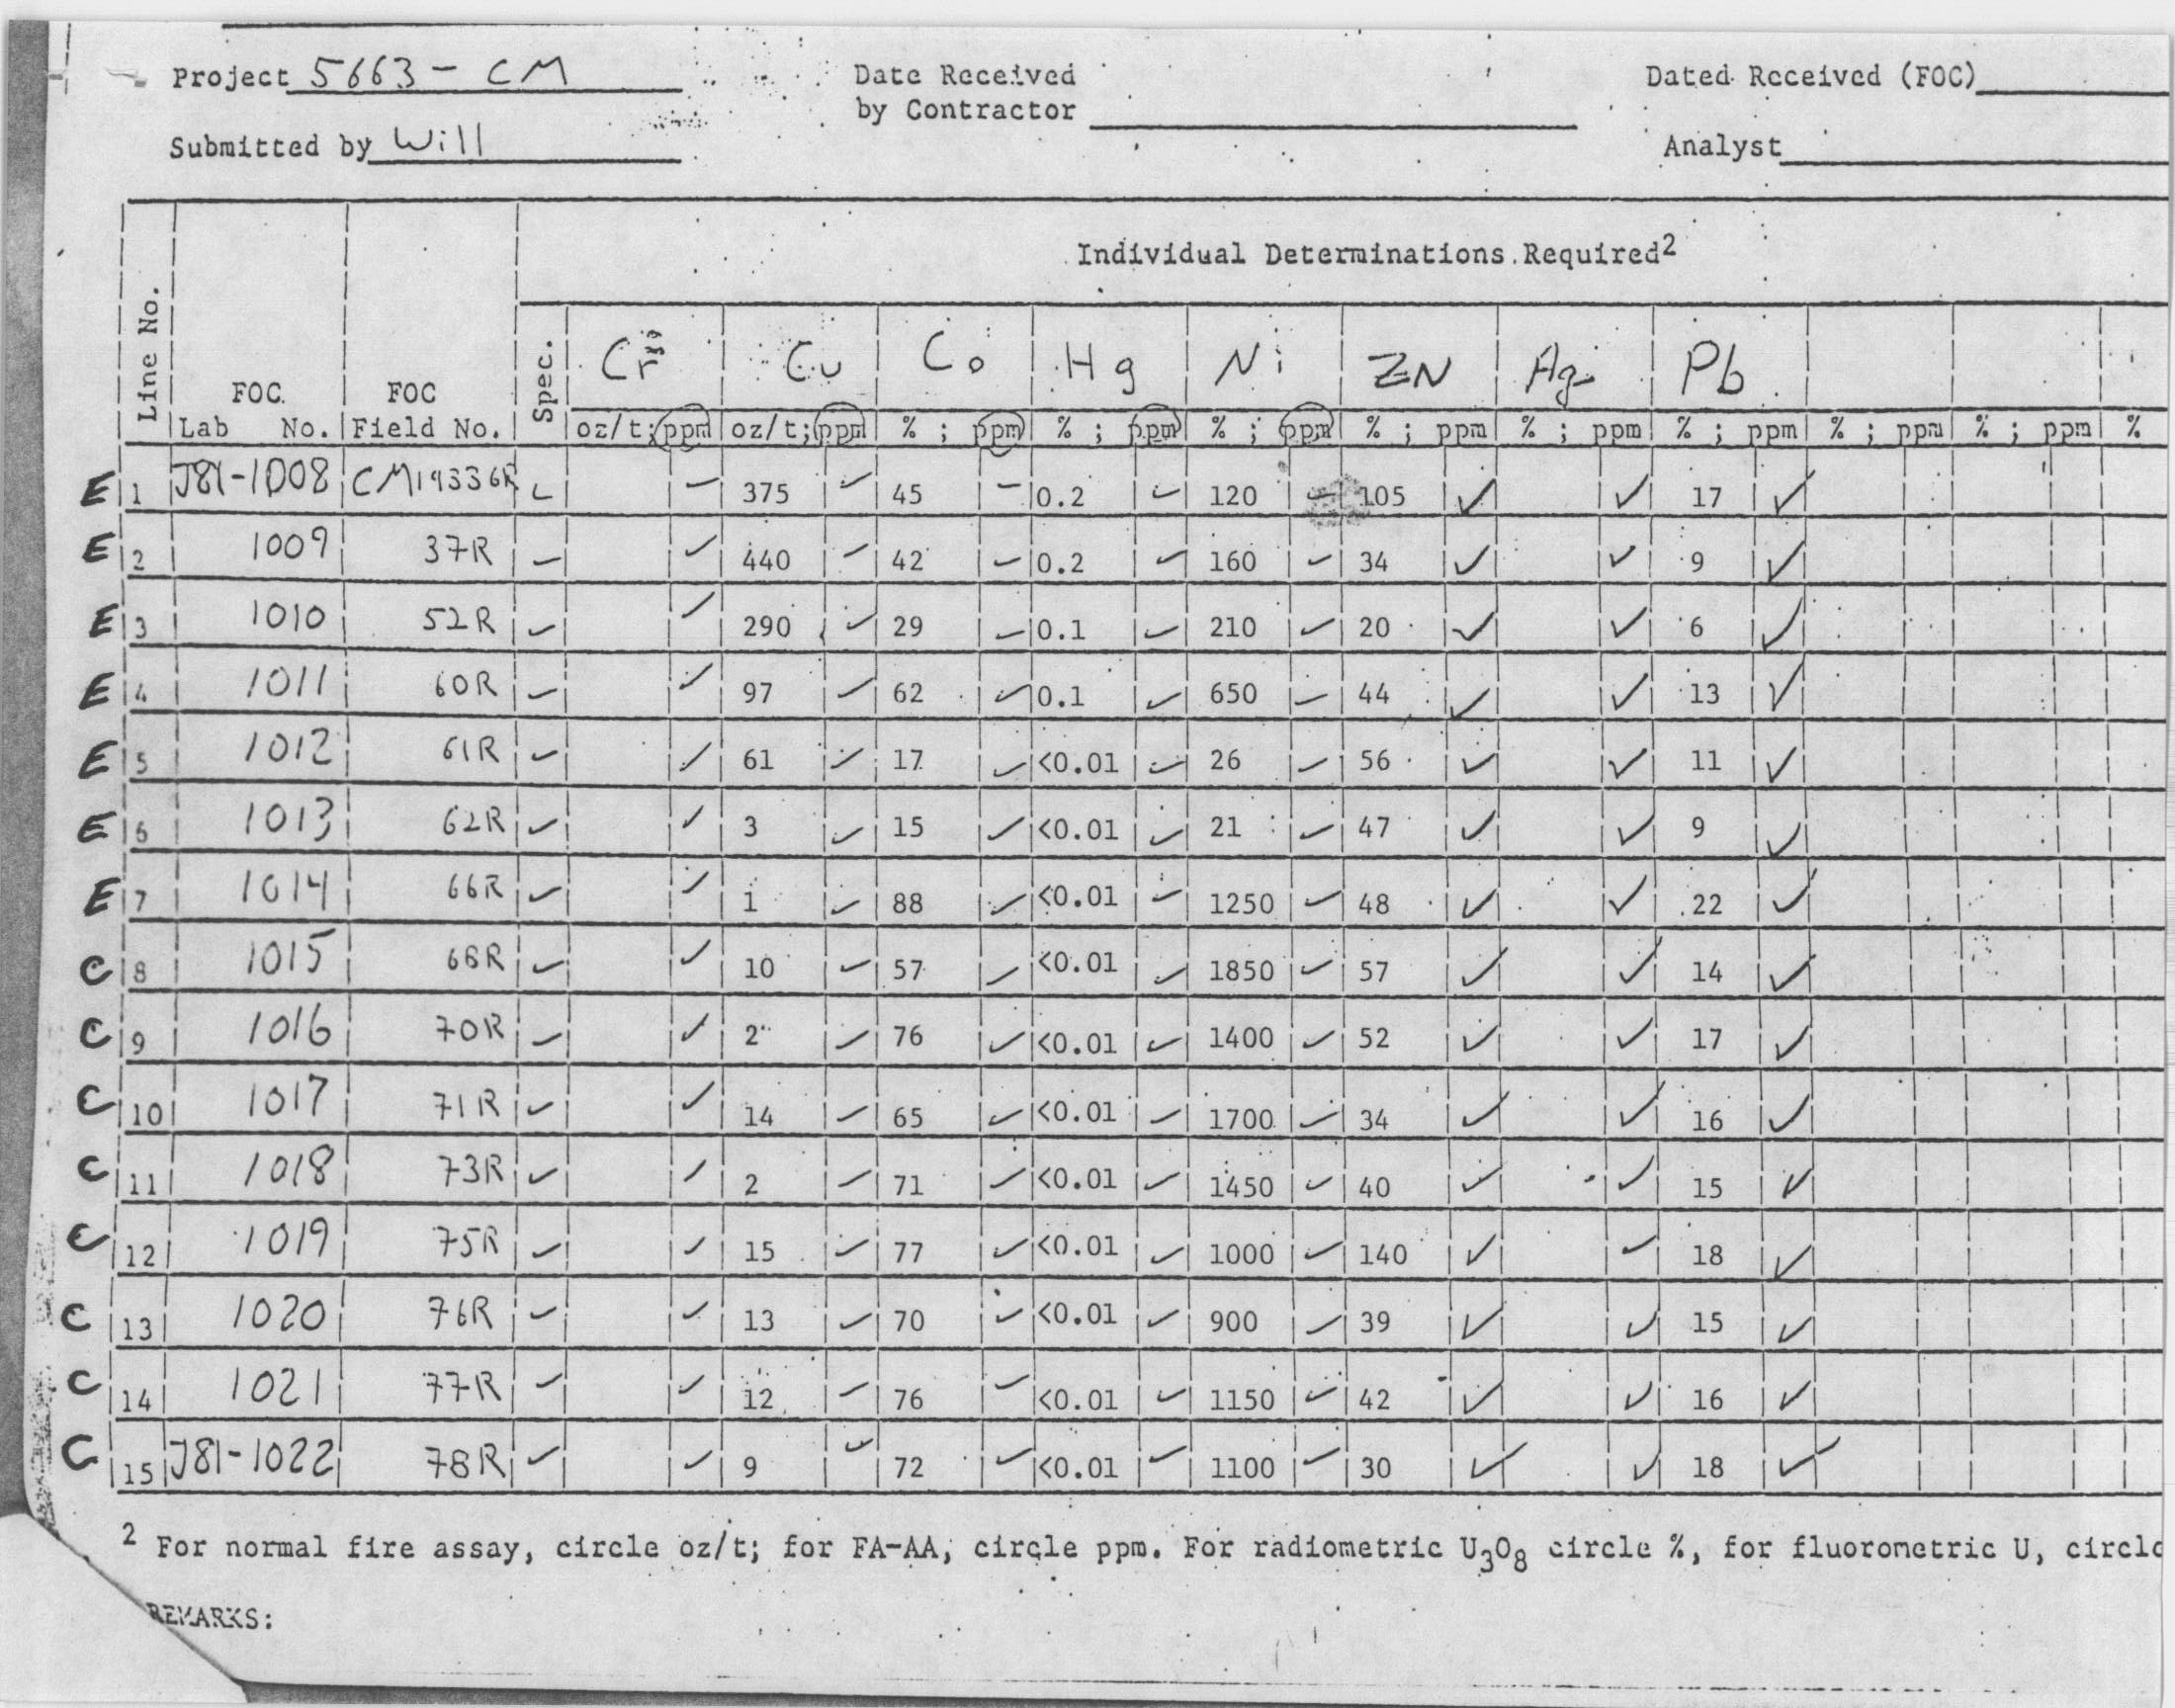 Project 5663 - CM Date Received Dated Received (FOC)
by Contractor
Submitted by Will Analyst
Individual Determinations Required2
Line No. FOC Lab No. FOC Field No. Spec. Cr Cu Co Hg Ni ZN Ag Pb
oz/t; ppm oz/t; ppm % ; ppm % ; ppm % ; ppm % ; ppm % ; ppm % ; ppm % ; ppm % ; ppm %
E 1 J81-1008 CM19336R ✓ ✓ 375 ✓ 45 ✓ 0.2 ✓ 120 ✓ 105 ✓ ✓ 17 ✓
E 2 1009 37R ✓ ✓ 440 ✓ 42 ✓ 0.2 ✓ 160 ✓ 34 ✓ ✓ 9 ✓
E 3 1010 52R ✓ ✓ 290 ✓ 29 ✓ 0.1 ✓ 210 ✓ 20 ✓ ✓ 6 ✓
E 4 1011 60R ✓ ✓ 97 ✓ 62 ✓ 0.1 ✓ 650 ✓ 44 ✓ ✓ 13 ✓
E 5 1012 61R ✓ ✓ 61 ✓ 17 ✓ <0.01 ✓ 26 ✓ 56 ✓ ✓ 11 ✓
E 6 1013 62R ✓ ✓ 3 ✓ 15 ✓ <0.01 ✓ 21 ✓ 47 ✓ ✓ 9 ✓
E 7 1014 66R ✓ ✓ 1 ✓ 88 ✓ <0.01 ✓ 1250 ✓ 48 ✓ ✓ 22 ✓
C 8 1015 68R ✓ ✓ 10 ✓ 57 ✓ <0.01 ✓ 1850 ✓ 57 ✓ ✓ 14 ✓
C 9 1016 70R ✓ ✓ 2 ✓ 76 ✓ <0.01 ✓ 1400 ✓ 52 ✓ ✓ 17 ✓
C 10 1017 71R ✓ ✓ 14 ✓ 65 ✓ <0.01 ✓ 1700 ✓ 34 ✓ ✓ 16 ✓
C 11 1018 73R ✓ ✓ 2 ✓ 71 ✓ <0.01 ✓ 1450 ✓ 40 ✓ ✓ 15 ✓
C 12 1019 75R ✓ ✓ 15 ✓ 77 ✓ <0.01 ✓ 1000 ✓ 140 ✓ ✓ 18 ✓
C 13 1020 76R ✓ ✓ 13 ✓ 70 ✓ <0.01 ✓ 900 ✓ 39 ✓ ✓ 15 ✓
C 14 1021 77R ✓ ✓ 12 ✓ 76 ✓ <0.01 ✓ 1150 ✓ 42 ✓ ✓ 16 ✓
C 15 J81-1022 78R ✓ ✓ 9 ✓ 72 ✓ <0.01 ✓ 1100 ✓ 30 ✓ ✓ 18 ✓
2 For normal fire assay, circle oz/t; for FA-AA, circle ppm. For radiometric U3O8 circle %, for fluorometric U, circle
REMARKS: